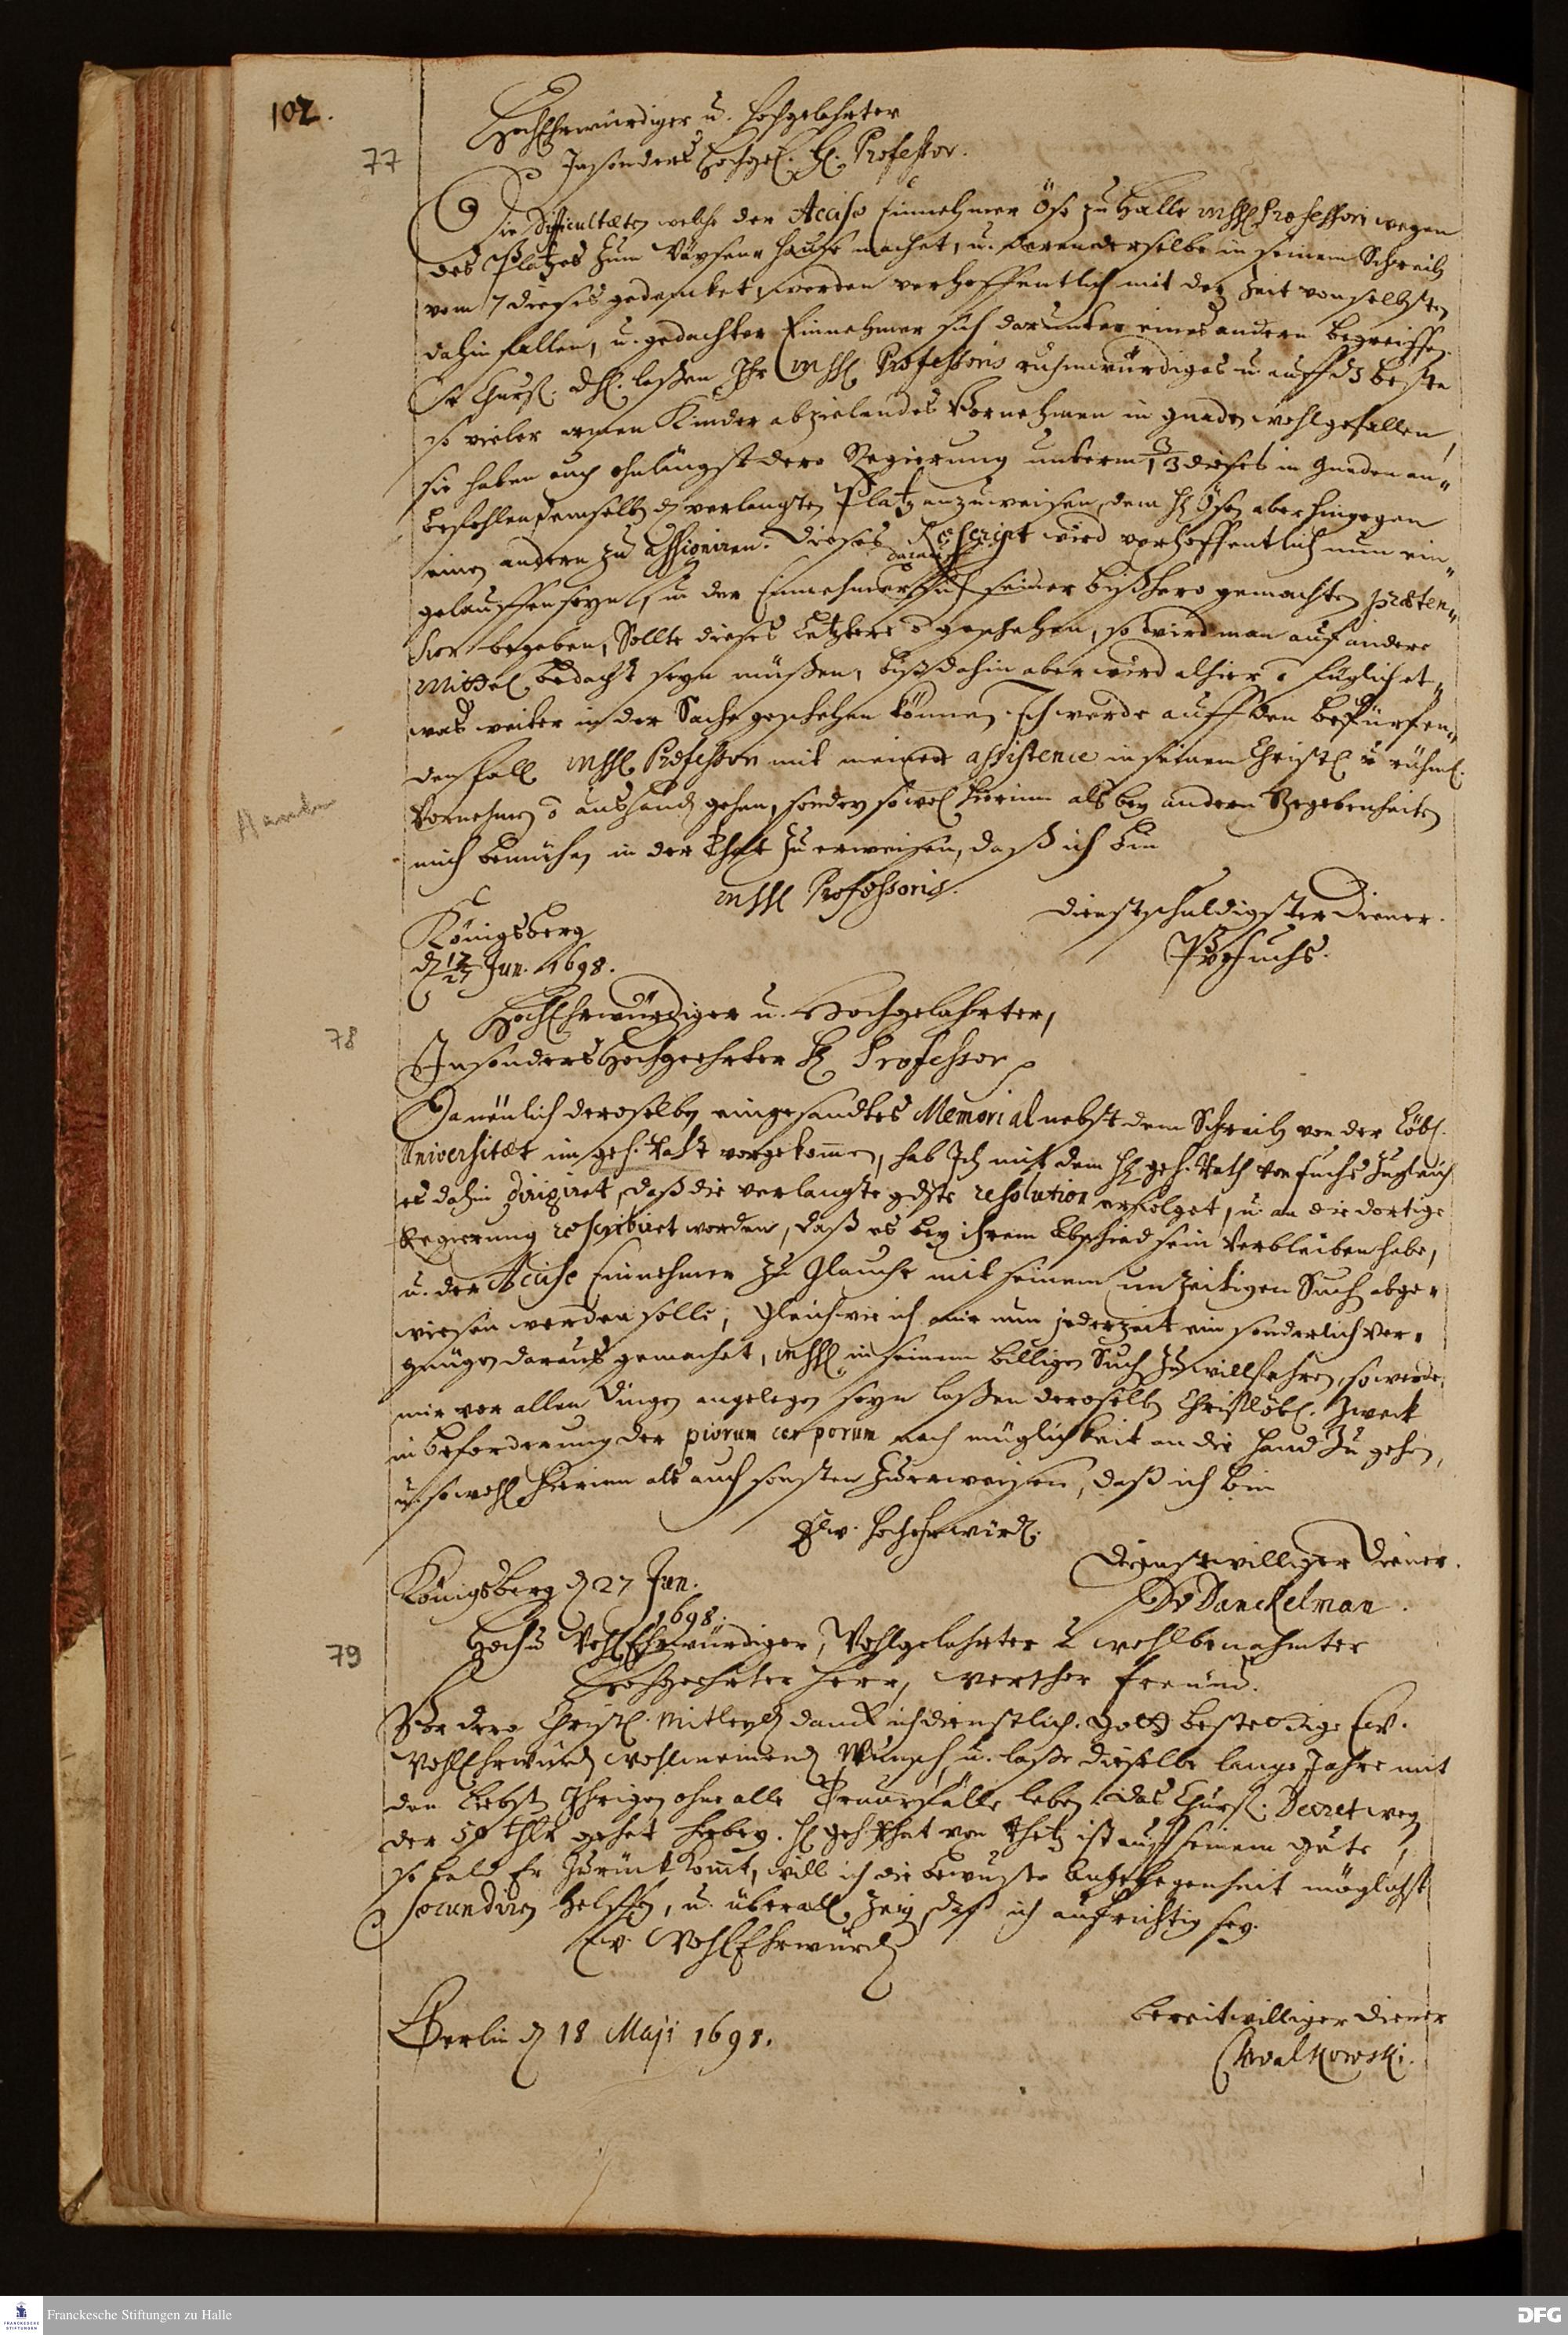 102.
77
HochEhrwürdiger u. Hochgelahrter
Insonders Hochge. H. Professor.
Die Difficultæten welche der Accise Einnehmer Öse zu Halle mhhl Professori wegen
des Platzes zum Wäysen-Hause machet, u. deren derselbe in seinem Schreiben
vom 7 dieses gedencket, werden verhoffentlich mit der Zeit von selbsten
dahin fallen, u. gedachter Einnehmer sich darunter eines andern begreiffen.
Se Churf. Dhl. laßen Ihr mhhl Professoris ruhmwürdiges u. auff dz beste
so vieler armen Kinder abzielendes Vornehmen in gnaden wohlgefallen,
sie haben auch ohnlängst dero Regierung unterm 3/13 dieses in Gnaden an„
befohlen, demselben den verlangten Platz anzuweisen, dem H Ösen aber hingegen
einen andern zu assigniren. Dieses Rescript wird verhoffentlich nun ein„
gelauffen seyn, u der Einnehmer sich seiner bißhero gemachten præten„
sion begeben, Sollte dieses Letztere geschehen, so wird man auf andere
Mittel bedacht seyn müßen, biß dahin aber wird alhier füglich et„
was weiter in der Sache geschehen können. Ich werde auff den bedürfen„
den Fall mhhl Professori mit meiner assistence in seinem Christl u rühml.
Vornehmen aus Handen gehen, sondern sowol hierinn als bey andern Begebenheiten
mich bemühen in der That zu erweisen, daß ich bin
mhhl Professoris.
Königsberg
d 17/27 Jun. 1698.
dienstschuldigster Diener.
PvFuchs.
78
HochEhrwürdiger u. Hochgelahrter,
Insonders Hochgeehrter H Professor
Da neulich deroselben eingesandtes Memorial nebst dem Schreiben von der Löbl.
Universitæt im geh. Raht vorgekommen, hab Ich mit dem H geh. Rath von Fuchs zugleich
es dahin dirigiret, daß die verlangte gdste resolution erfolget, u. an die dortige
Regierung rescribiret worden, daß es bey ihrem Abschied sein Verbleiben habe,
u. der Accise Einnehmer zu Glauche mit seinem unzeitigen Such abge„
wiesen werden solle; Gleichwie ich mir nun jederzeit ein sonderlich Ver„
gnügen daraus gemachet, mhhl in seinem billigen Such zu willfahren, so werde
mir vor allen Dingen angelegen seyn laßen deroselben Christlöbl. Zweck
in beforderung der piorum corporum nach müglichkeit an die Hand zu gehen,
u. sowohl hierinn als auch sonsten zu erweisen, daß ich bin
Ew. Hochehrwürd.
Königsberg d 27 Jun.
1698.
Dienstwilliger Diener.
DvDanckelman.
79
Hoch u WohlEhrwürdiger, Wohlgelahrter u wohlbenahmter
Hochgeehrter Herr, werther Freund.
Vor dero Christl. Mitleyden danck ich dienstlich. Gott bestetige Ew.
WohlEhrwürd wohlmeinend Wunsch, u. laße dieselbe lange Jahre mit
den Liebsten Ihrigen ohne alle Trauerfälle leben. Das Churf. Decret wegen
der 50 thlr gehet hierbey. H geh. Rhat von Rhetz ist auf seinem gute,
so bald Er zurück kommt, will ich die bewuste Angelegenheit möglichst
secundiren helffen, u. überall zeigen, daß ich aufrichtig sey.
Ew. WohlEhrwürd
Berlin d 18 Maji 1698.
bereitwilliger Diener
Chwalkowski.
Franckesche Stiftungen zu Halle
DFG